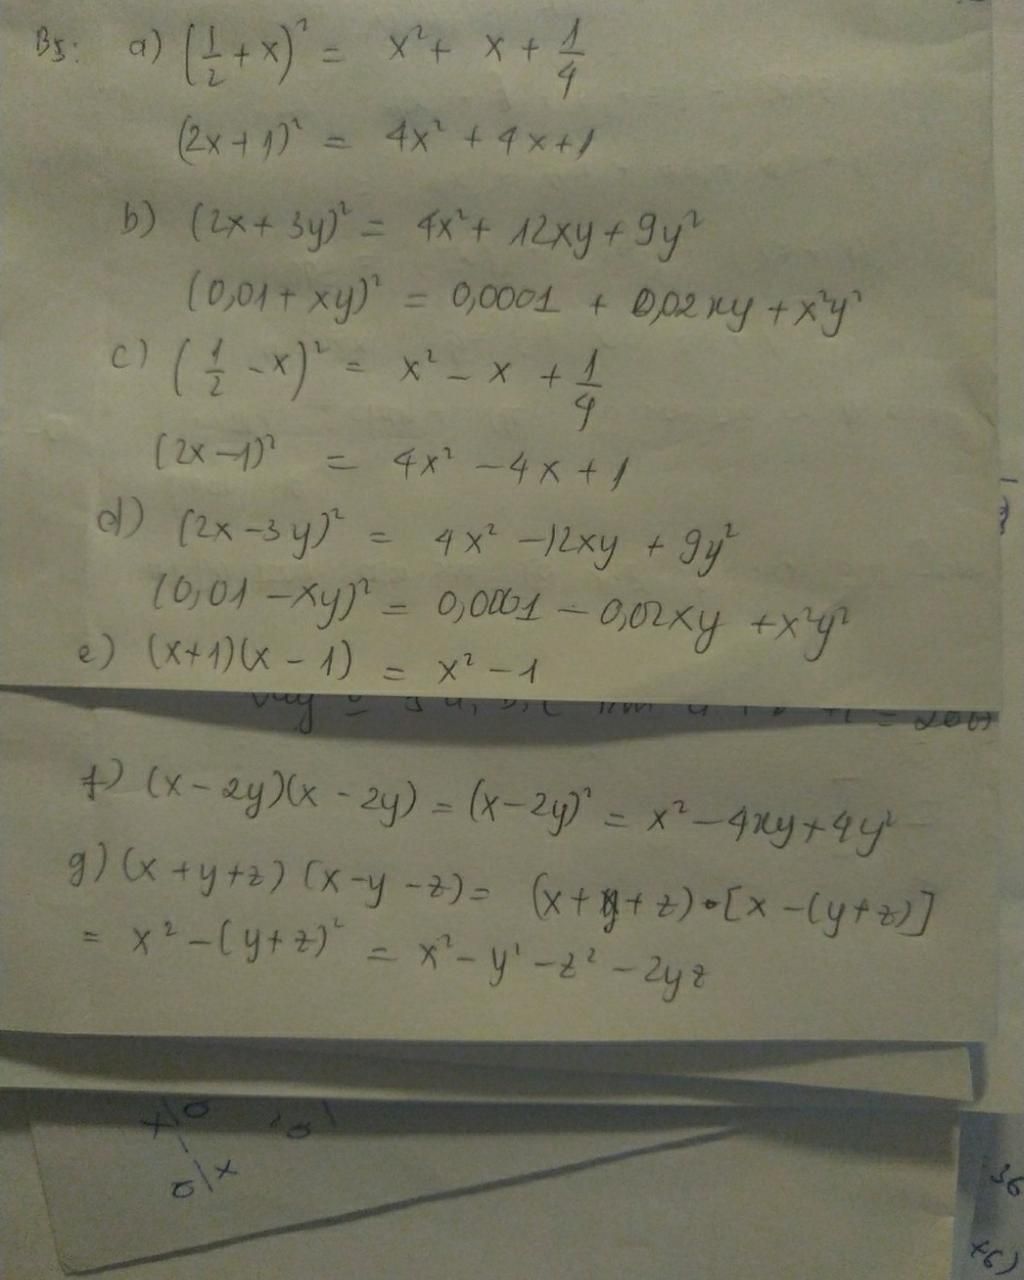 B5: a) (1/2 + x)² = x² + x + 1/4
(2x + 1)² = 4x² + 4x + 1
b) (2x + 3y)² = 4x² + 12xy + 9y²
(0,01 + xy)² = 0,0001 + 0,02xy + x²y²
c) (1/2 - x)² = x² - x + 1/4
(2x - 1)² = 4x² - 4x + 1
d) (2x - 3y)² = 4x² - 12xy + 9y²
(0,01 - xy)² = 0,0001 - 0,02xy + x²y²
e) (x+1)(x - 1) = x² - 1
f) (x - 2y)(x - 2y) = (x - 2y)² = x² - 4xy + 4y²
g) (x + y + z) (x - y - z) = (x + y + z) • [x - (y + z)]
= x² - (y + z)² = x² - y² - z² - 2yz
36
+6)